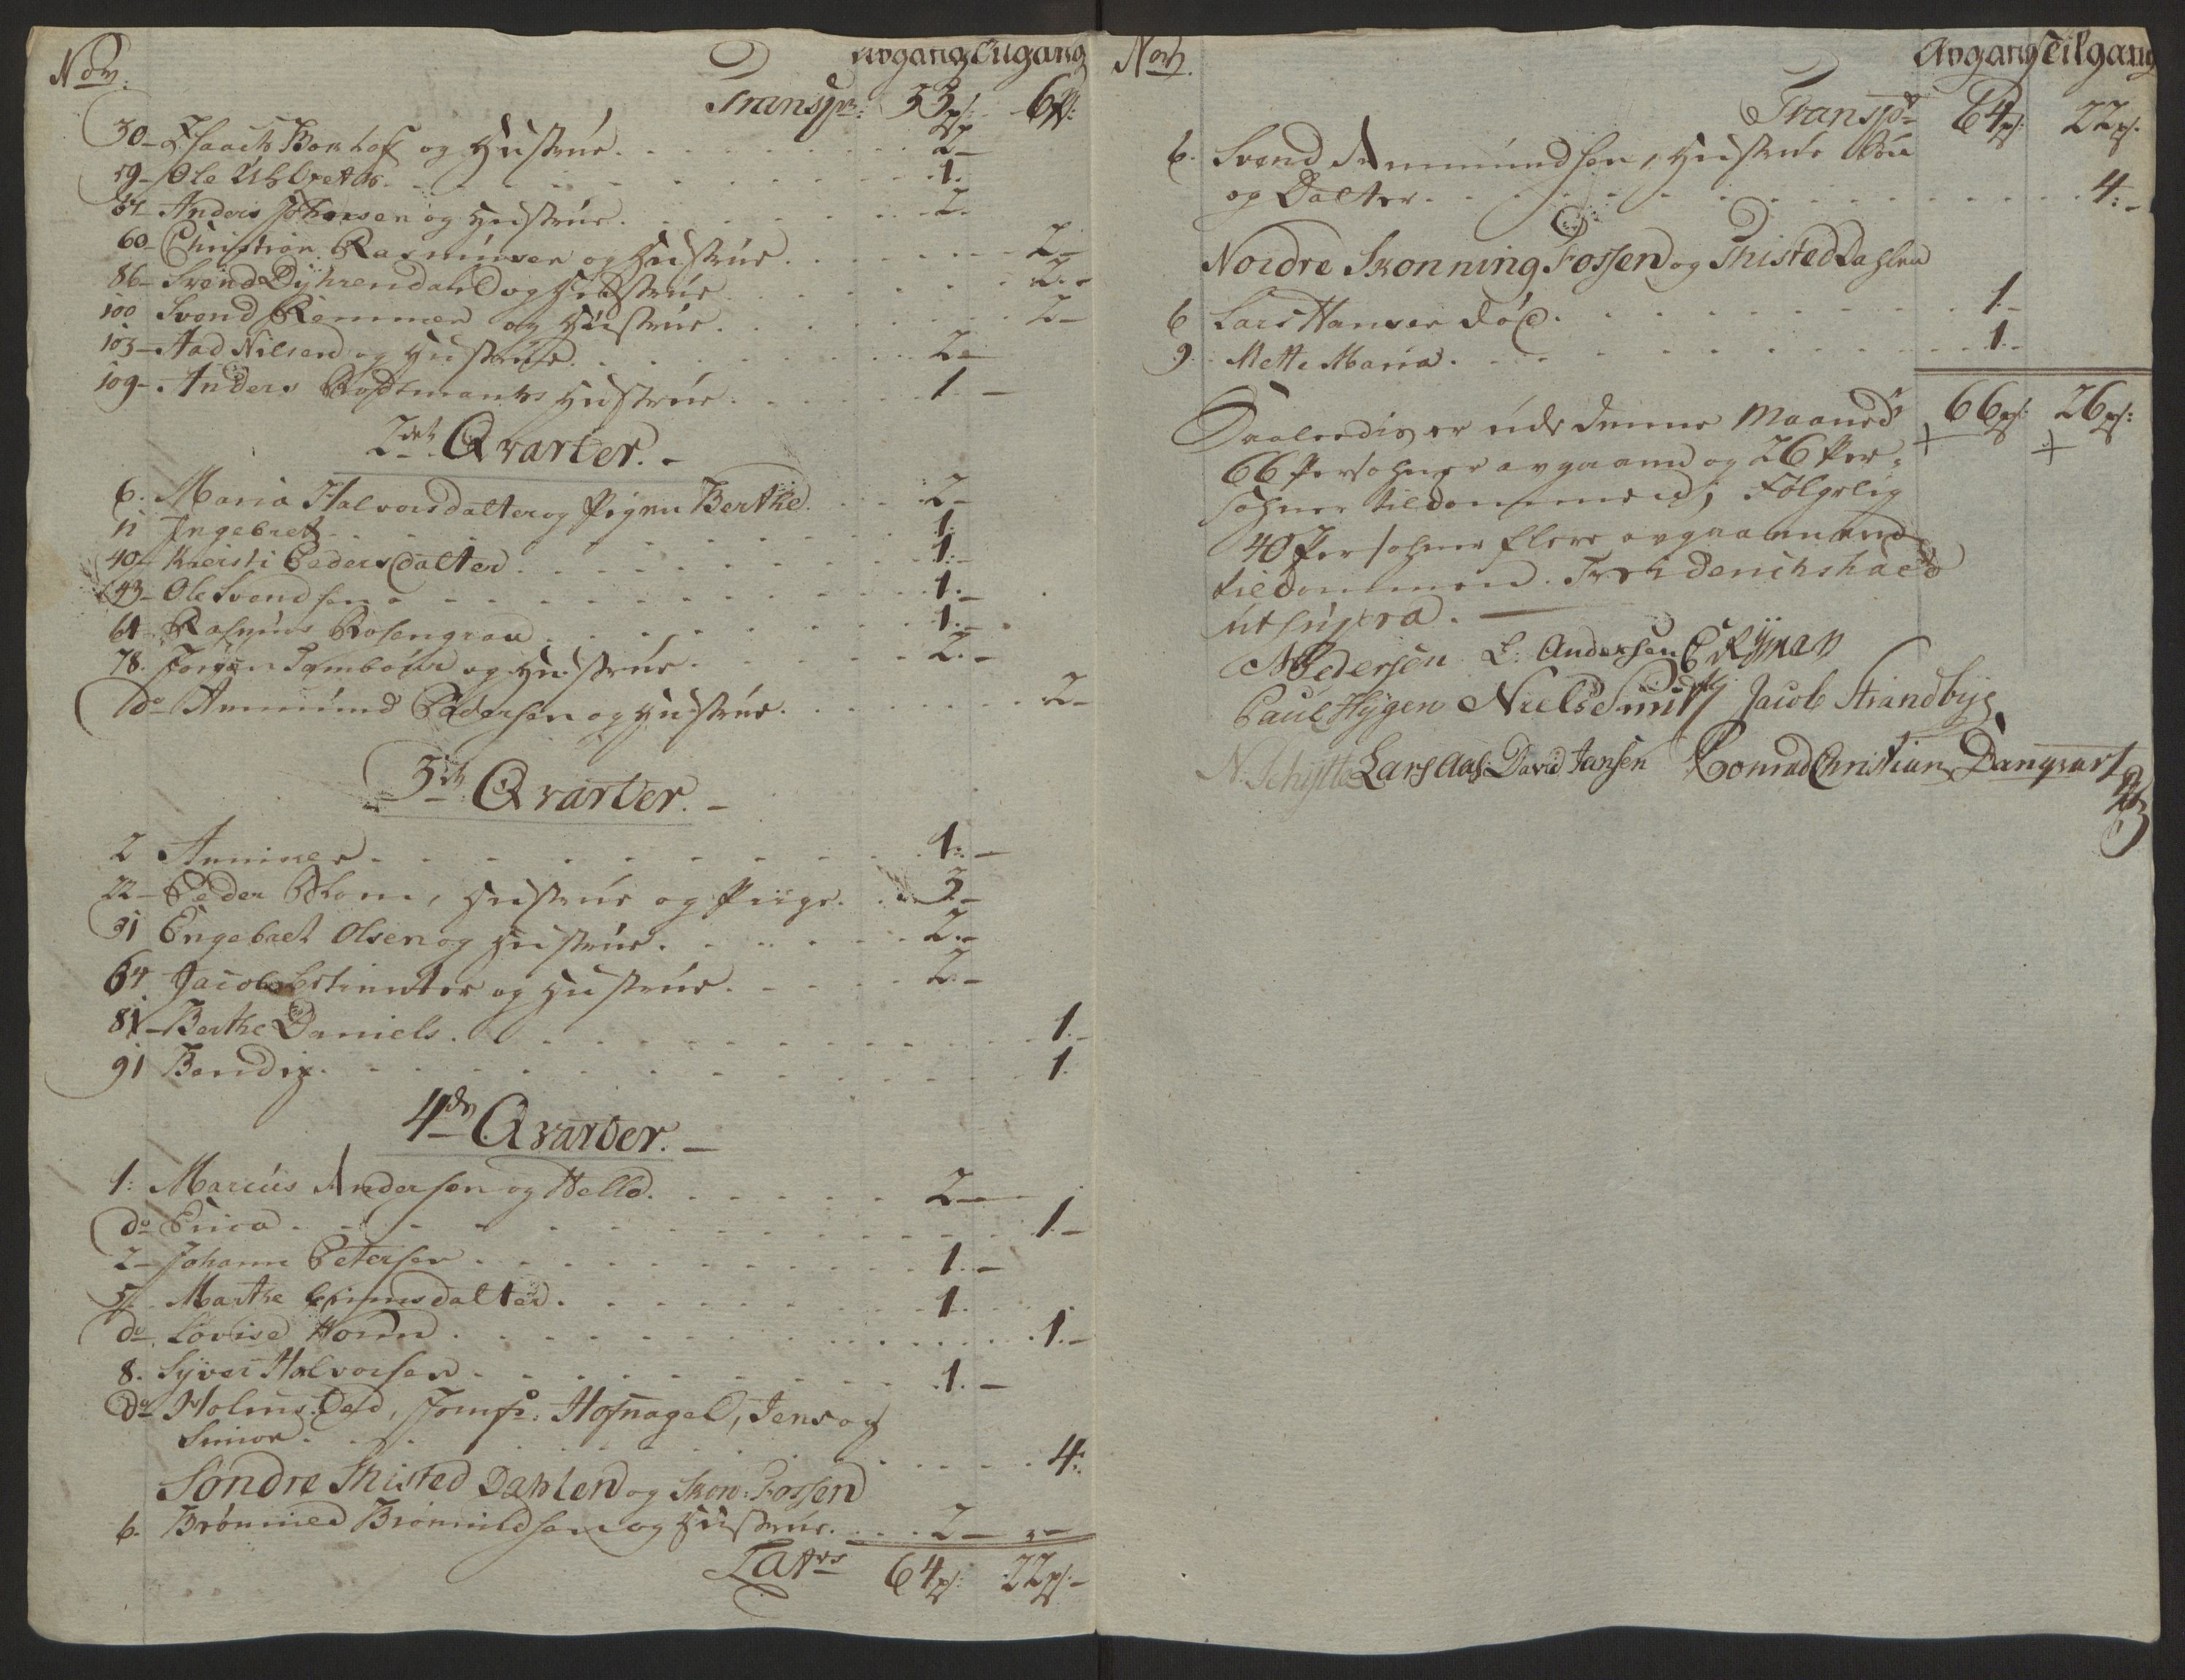 Nom: Avgang Tilgang
Transp: 33 ps: 6 ps:
30 - Isaach Bonhof og Hustrue . . . 2 -
59 - Ole Uhlvetds . . . 1.
37 - Anders Johansen og Hustrue . . . 2.
60 - Christian Rasmusen og Hustrue . . . 2 -
86 - Svend Dyhrendahl og Hustrue . . . 2. -
100 Svend Remmen og Hustrue . . . 2 -
103 - Aad Nilsen og Hustrue . . . 2 -
109 - Anders Rostmans Hustrue . . . 1 -
2det Qvarter. -
6. Maria Halvorsdatter og Pigen Berthe . . . 2 -
11 Ingebret . . . 1.
40 - Kiersti Pedersdatter . . . 1. -
43 - Ole Svendsen . . . 1. -
61 - Rasmus Rosengran . . . 1. -
78. Jørgen Tambour og Hustrue . . . 2. -
do - Ammund Pedersen og Hustrue . . . 2 -
3de Qvarter. -
2 Anniken . . . 1. -
22 - Peder Bhom, Hustrue og Piige . . . 3 -
31 Engebret Olsen og Hustrue . . . 2. -
64 Jacob og Hustrue . . . 2. -
81 - Berthe Daniels . . . 1. -
91 Bendix . . . 1.
4de Qvarter. -
1: Marcus Andersen og Helle . . . 2 -
do Erica . . . 1 -
2 - Johann Petersen . . . 1. -
5 - Marthe datter . . . 1.
do Lovise Horn . . . 1. -
8. Syver Halvorsen . . . 1. -
do Holms. Jomfr: Hofnagel, Jens og
Simon . . . 4:
Søndre Thisted Dahlen og Skon: Fossen
6. Brønnild Brønnildsen og Hustrue . . . 2 -
Lates 64 ps: 22 ps: -
Nom. Avgang Tilgang
Transp 64 ps: 22 ps.
6. Svend Ammundsen, Hustrue Søn
og Datter . . . 4: -
Nordre Skonning Fossen og Thisted Dahlen
6 Lars Hansen død . . . 1 -
9. Mette Maria . . . 1. -
66 ps: 26 ps:
Saaledis er udi denne Maaned
66 Persohner avgaaend og 26 Per-
sohner tilkommen; Følgelig
40 Persohner flere avgaaen end
tilkommen. Friderichshald
ut supra.
N Pedersen L: Andersen C Ryman
Paul Hygen Niels Smith Jacob Strandbye
N. Schytte Lars Aas. David Jansen Conrad Christian Danquart